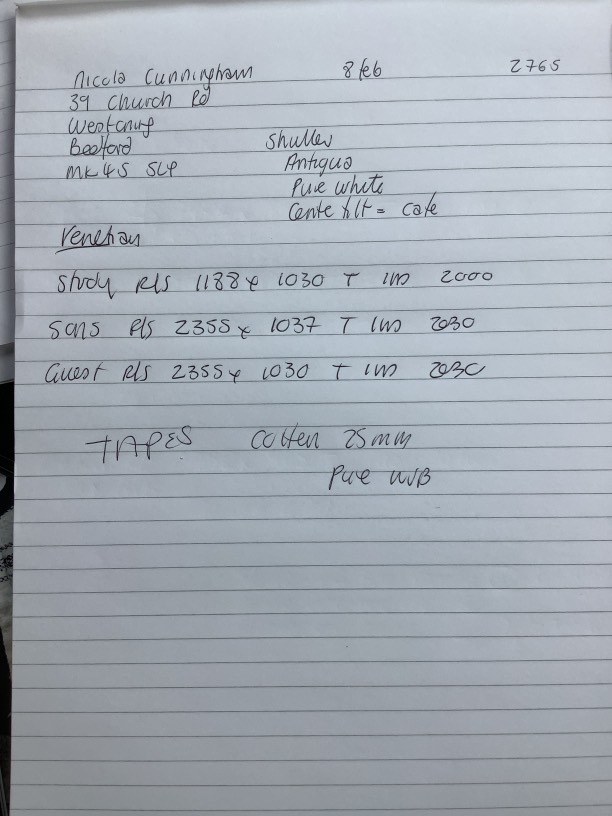 Nicola Cunningham 8 feb 2765
39 Church Rd
Bedford
MK45
Shutter
Antigua
Pure white
Centre tilt = Cafe
Venetian
Study R/S 1188 x 1030 T 2000
Sons R/S 2355 x 1037 T 2030
Guest R/S 2355 x 1030 T 2030
TAPES Cotten 25mm
Pure